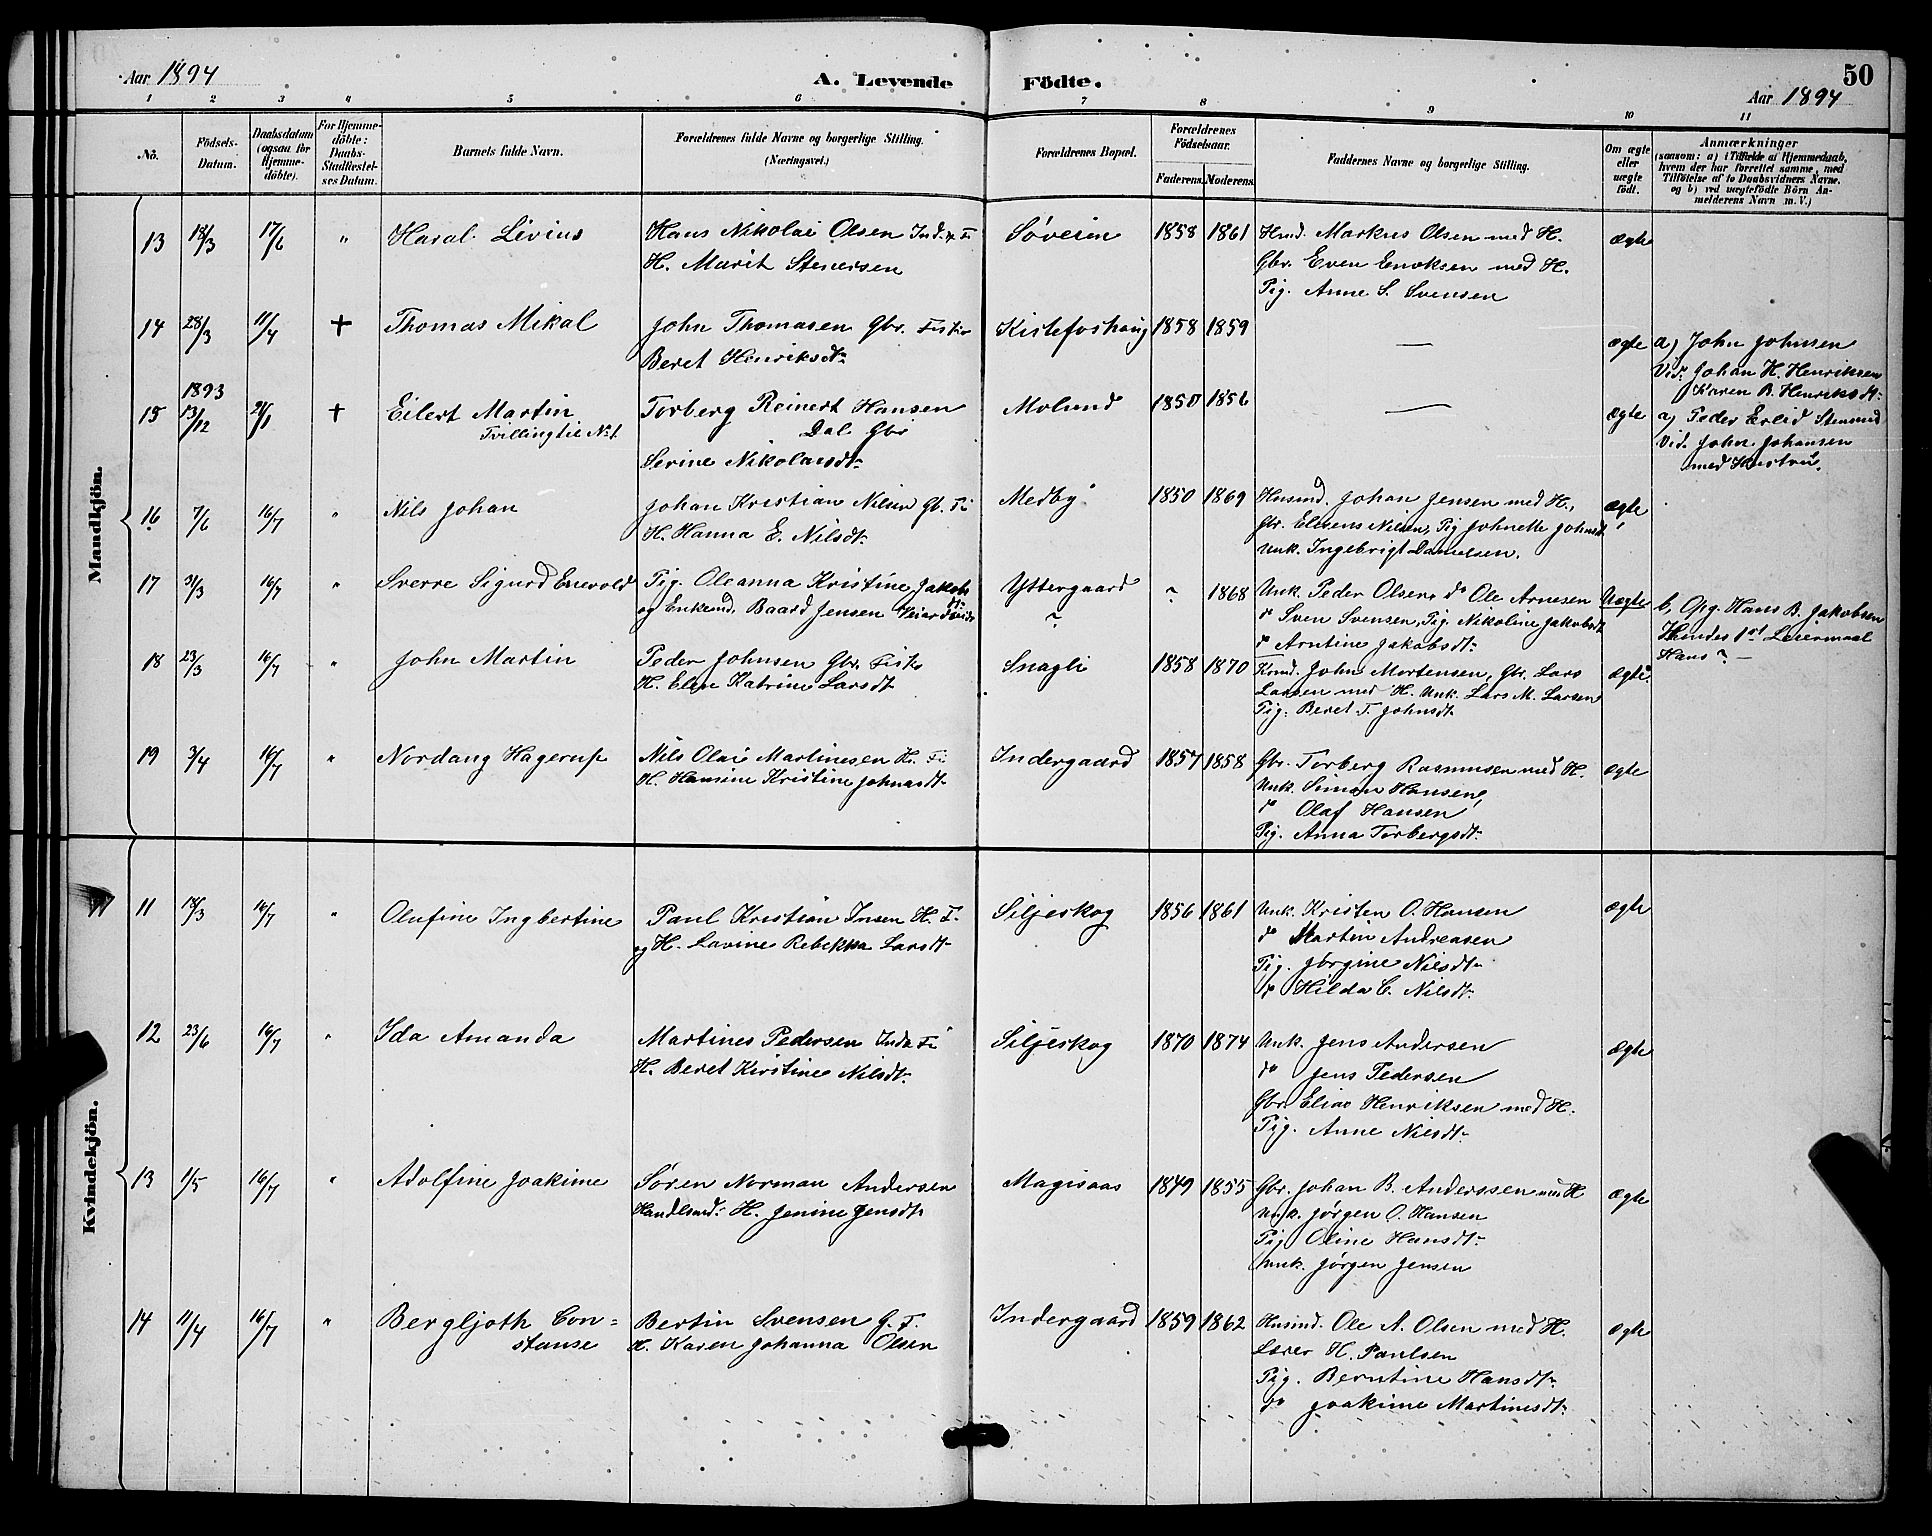 Aar 1894
A. Levende Födte.
50
Aar 1894
1 2 3 4 5 6 7 8 9 10 11
No.
Födsels-Datum.
Daabsdatum (ogsaa for Hjemme-döbte).
For Hjemme-döbte: Daabs-Stadfæstel-ses Datum.
Barnets fulde Navn.
Forældrenes fulde Navne og borgerlige Stilling. (Næringsvei.)
Forældrenes Bopæl.
Forældrenes Födselsaar.
Faderens. Moderens.
Faddernes Navne og borgerlige Stilling.
Om ægte eller uægte födt.
Anmærkninger
(saasom: a) i Tilfælde af Hjemmedaab,
hvem der har forrettet samme, med
Tilföielse af to Daabsvidners Navne,
og b) ved uægtefödte Börn An-
melderens Navn m. V.)
Mandkjön.
13 18/3 17/6 " Haral. Livius Hans Nikolai Olsen Ind. & Fi Søveien 1858 1861 Husd. Markus Olsen med H. ægte
H. Marit Stenersen Gbr. Even Enoksen med H.
Pig. Anne S. Svensen
14 28/3 11/4 + Thomas Mikal John Thomasen Gbr. Fisker Kistefoshaug 1858 1859 — ægte a) John Johnsen
Beret Henriksdtr Vid. Johan H. Henriksen
Karen B. Henriksdtr.
15 1893 13/12 + Eilert Martin Torberg Reinert Hansen Molund 1850 1856 — ægte a) Peder Erlid Stensund
Tvilling til No 1 Dal Gbr Vid. John Johansen
Serine Nikolaisdtr. med Hustru.
16 7/6 16/7 " Nils Johan Johan Kristian Nilsen Gb. Fi Medby 1850 1869 Husmd. Johan Jensen med H., ægte
H. Hanna E. Nilsdtr. Gbr. Elesens Nilsen, Pig Johnette Johnsdt
Unk. Ingebrigt Danielsen.
17 31/3 16/7 " Sverre Sigurd Enevold Pig. Oleanna Kristine Jakobs Yttergaard ~ 1868 Unk. Peder Olsen, do Ole Arnesen Uægte b, Opg. Hans B. Jakobsen
og Enkemd. Baard Jensen ~ do Sven Svensen, Pig. Nikoline Jakobsdt Hendes 1st Leiermaal
do Arntine Jakobsdt. Hans ? —
18 23/3 16/7 " John Martin Peder Johnsen Gbr. Fisker Snagli 1858 1870 Kmd. John Mortensen, Gbr. Lars ægte
H. Elen Katrine Larsdt Larsen med H. Unk. Lars M. Larsen
Pig. Beret F. Johnsdt.
19 3/4 16/7 " Nordang Hagerup Nils Olai Martinesen H. Fi Indergaard 1857 1858 Gbr. Torberg Rasmussen med H. ægte
H. Hansine Kristine Johnsdt Unk. Simon Hansen,
do Olaf Hansen
Pig. Anna Torbergsdt.
Kvindekjön.
11 18/3 16/7 " Olufine Ingbertine Paul Kristian Insen H. F. Siljeskog 1856 1861 Unk. Kristen O. Hansen ægte
og H. Lavine Rebekka Larsdt do Martin Andreasen
Pig. Jørgine Nilsdt.
do Hilda C. Nilsdt.
12 23/6 16/7 " Ida Amanda Martines Pedersen Inds Fi Siljeskog 1870 1874 Unk. Jens Andersen ægte
H. Beret Kirstine Nilsdt. do Jens Pedersen
Gbr. Elias Henriksen med H.
Pig. Anne Nilsdt.
13 1/5 16/7 " Adolfine Joakime Søren Norman Andersen Magisaas 1849 1855 Gbr. Johan B. Anderssen med H ægte
Handlesmd. H. Jenine Jensdt. Unk. Jørgen O. Hansen
Pig Oline Hansdt.
Unk. Jørgen Jensen
14 11/4 16/7 " Bergljoth Con= Bertin Svensen G. F. Indergaard 1859 1862 Husmd. Ole A. Olsen med H. ægte
stanse H. Karen Johanna Olsen Lærer H. Paulsen
Pig. Berntine Hansdt.
do Joakime Martinesdt.